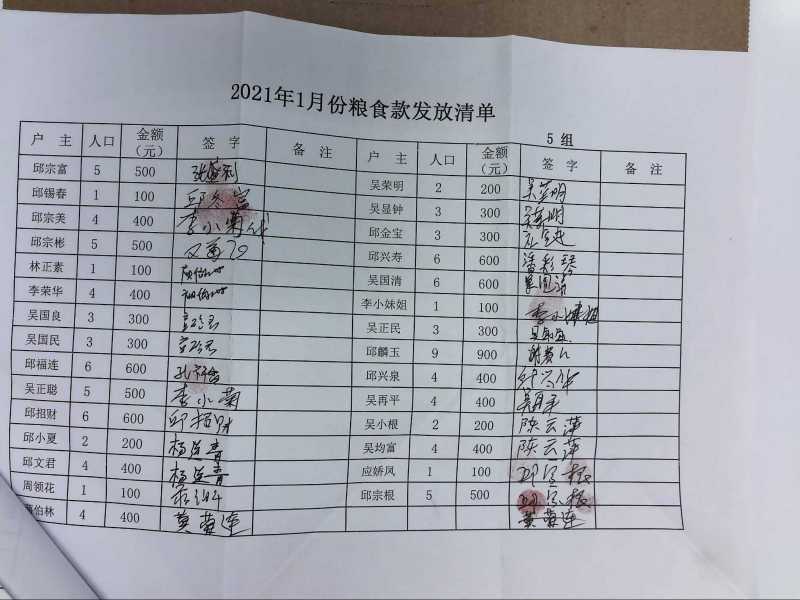 2021年1月份粮食款发放清单
5 组
户 主 人口 金额（元） 签 字 备 注 户 主 人口 金额（元） 签 字 备 注
邱宗富 5 500
邱锡春 1 100
邱宗美 4 400 李小菊代
邱宗彬 5 500
林正素 1 100
李荣华 4 400
吴国良 3 300
吴国民 3 300
邱福连 6 600
吴正聪 5 500 李小菊
邱招财 6 600 邱招财
邱小夏 2 200 杨连青
邱文君 4 400 杨连青
周领花 1 100
伯林 4 400 黄菊连
吴荣明 2 200 吴荣明
吴显钟 3 300
邱金宝 3 300
邱兴寿 6 600 潘彩琴
吴国清 6 600 吴国清
李小妹姐 1 100 李小妹姐
吴正民 3 300
邱麟玉 9 900
邱兴泉 4 400
吴再平 4 400 吴再平
吴小根 2 200 陈云萍
吴均富 4 400 陈云萍
应娇凤 1 100 邱宗根
邱宗根 5 500 邱宗根
黄菊连